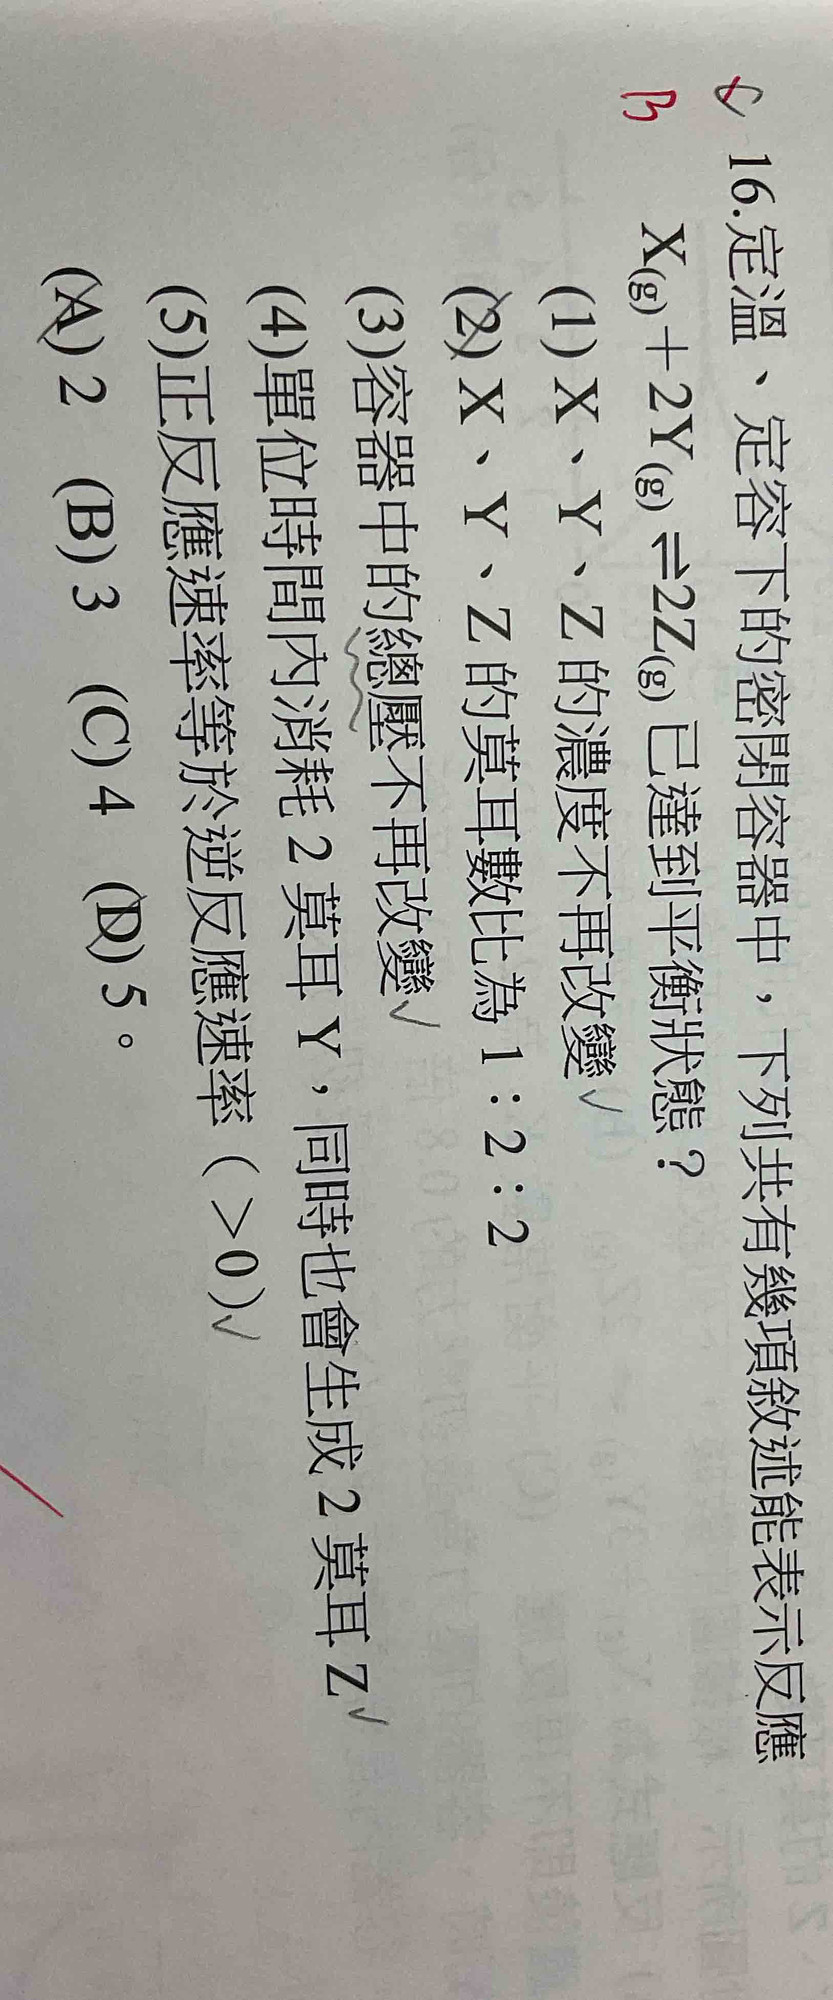 C 16.定溫、定容下的密閉容器中，下列共有幾項敘述能表示反應
B X(g)＋2Y(g)⇌2Z(g)已達到平衡狀態？
(1) X、Y、Z 的濃度不再改變✓
(2) X、Y、Z 的莫耳數比為 1：2：2
(3)容器中的總壓不再改變✓
(4)單位時間內消耗 2 莫耳 Y，同時也會生成 2 莫耳 Z✓
(5)正反應速率等於逆反應速率（＞0）✓
(A) 2 (B) 3 (C) 4 (D) 5。